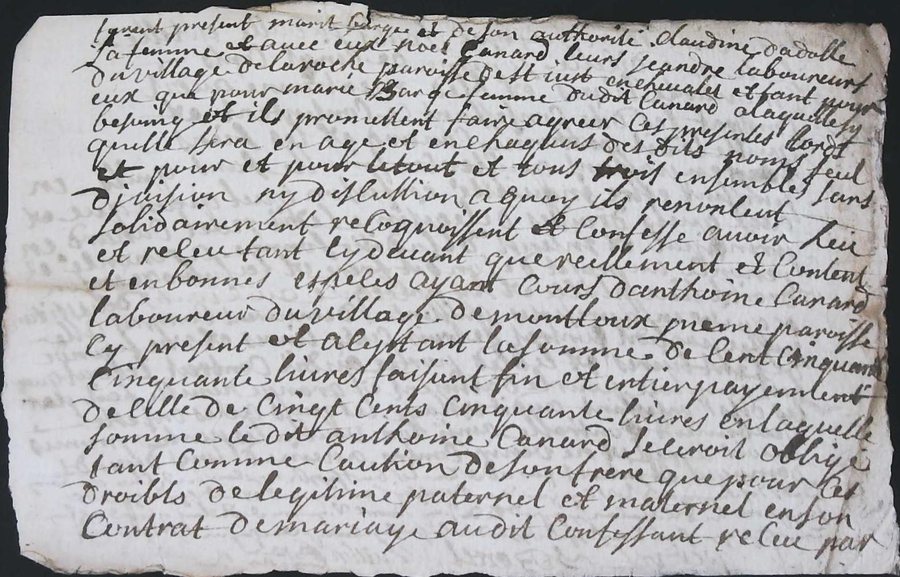 furent present marit Barge et de son authorité Claudine dadolle
sa femme et avec eux noel Canard leurs gendre laboureurs
du village de laroche paroisse de st iust en chevalet et tant pour
eux que pour marie Barge femme dudit Canard a laquelle sy
besoing et ils promettent faire agreer ces presentes lords
quelle sera en age et en chaquns des dits noms seul
et pour et pour le tout et tous trois ensembles sans
division ny discussion a quoy ils renoncent
solidairement recognoissent et confesse avoir heu
et receu tant cy devant que reellement et content
et en bonnes espeses ayant cours danthoine Canard
laboureur du village de montloux meme paroisse
cy present et aceptant la somme de cent cinquante
cinquante livres faisant fin et entier payement
de celle de cinqt cents cinquante livres en laquelle
somme le dit anthoine Canard seroit obligé
tant comme caution de son frere que pour ces
droibts de legitime paternel et maternel en son
contrat de mariage audit confessant receu par